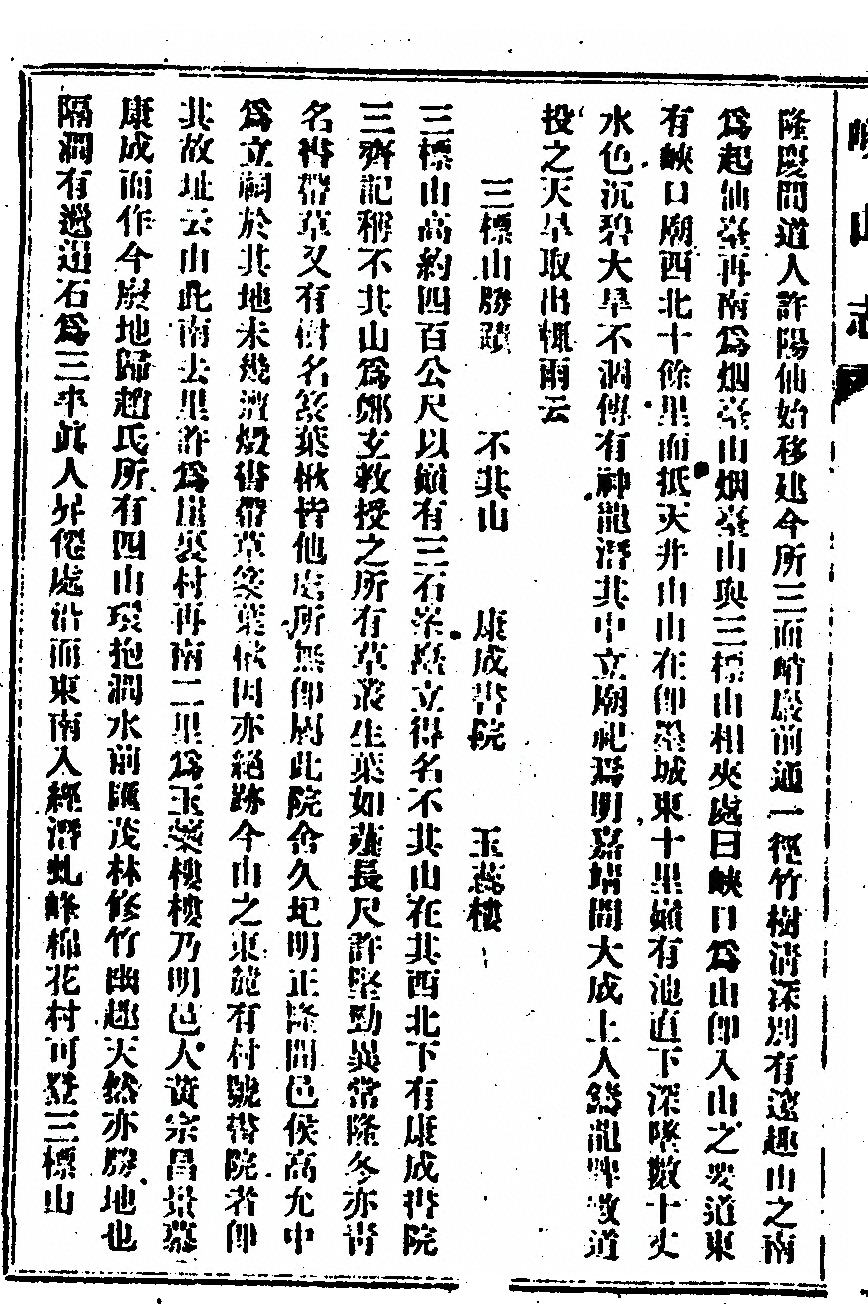 嶗山志
隆慶間道人許陽仙始移建今所三面峭巖前通一徑竹樹清深別有遠趣山之南
爲起仙臺再南爲烟臺山烟臺山與三標山相夾處曰峽口爲山卽入山之要道東
有峽口廟西北十餘里而抵天井山山在卽墨城東十里巔有池直下深墜數十丈
水色沉碧大旱不涸傳有神龍潛其中立廟祀焉明嘉靖間大成上人鑄龍牌數道
投之天旱取出輒雨云
三標山勝蹟 不其山 康成書院 玉蕊樓
三標山高約四百公尺以巔有三石峯矗立得名不其山在其西北下有康成書院
三齊記稱不其山爲鄭玄敎授之所有草叢生葉如薤長尺許堅勁異常隆冬亦靑
名書帶草又有樹名篆葉楸皆他處所無卽屬此院舍久圮明正隆間邑侯高允中
爲立祠於其地未幾被燬書帶草篆葉楸因亦絕跡今山之東麓有村號書院者卽
其故址云由此南去里許爲崖裏村再南二里爲玉蕊樓樓乃明邑人黃宗昌景慕
康成而作今廢地歸趙氏所有四山環抱澗水前匯茂林修竹幽趣天然亦勝地也
隔澗有邋遢石爲三丰眞人昇僊處沿而東南入經潛虬峰棉花村可登三標山